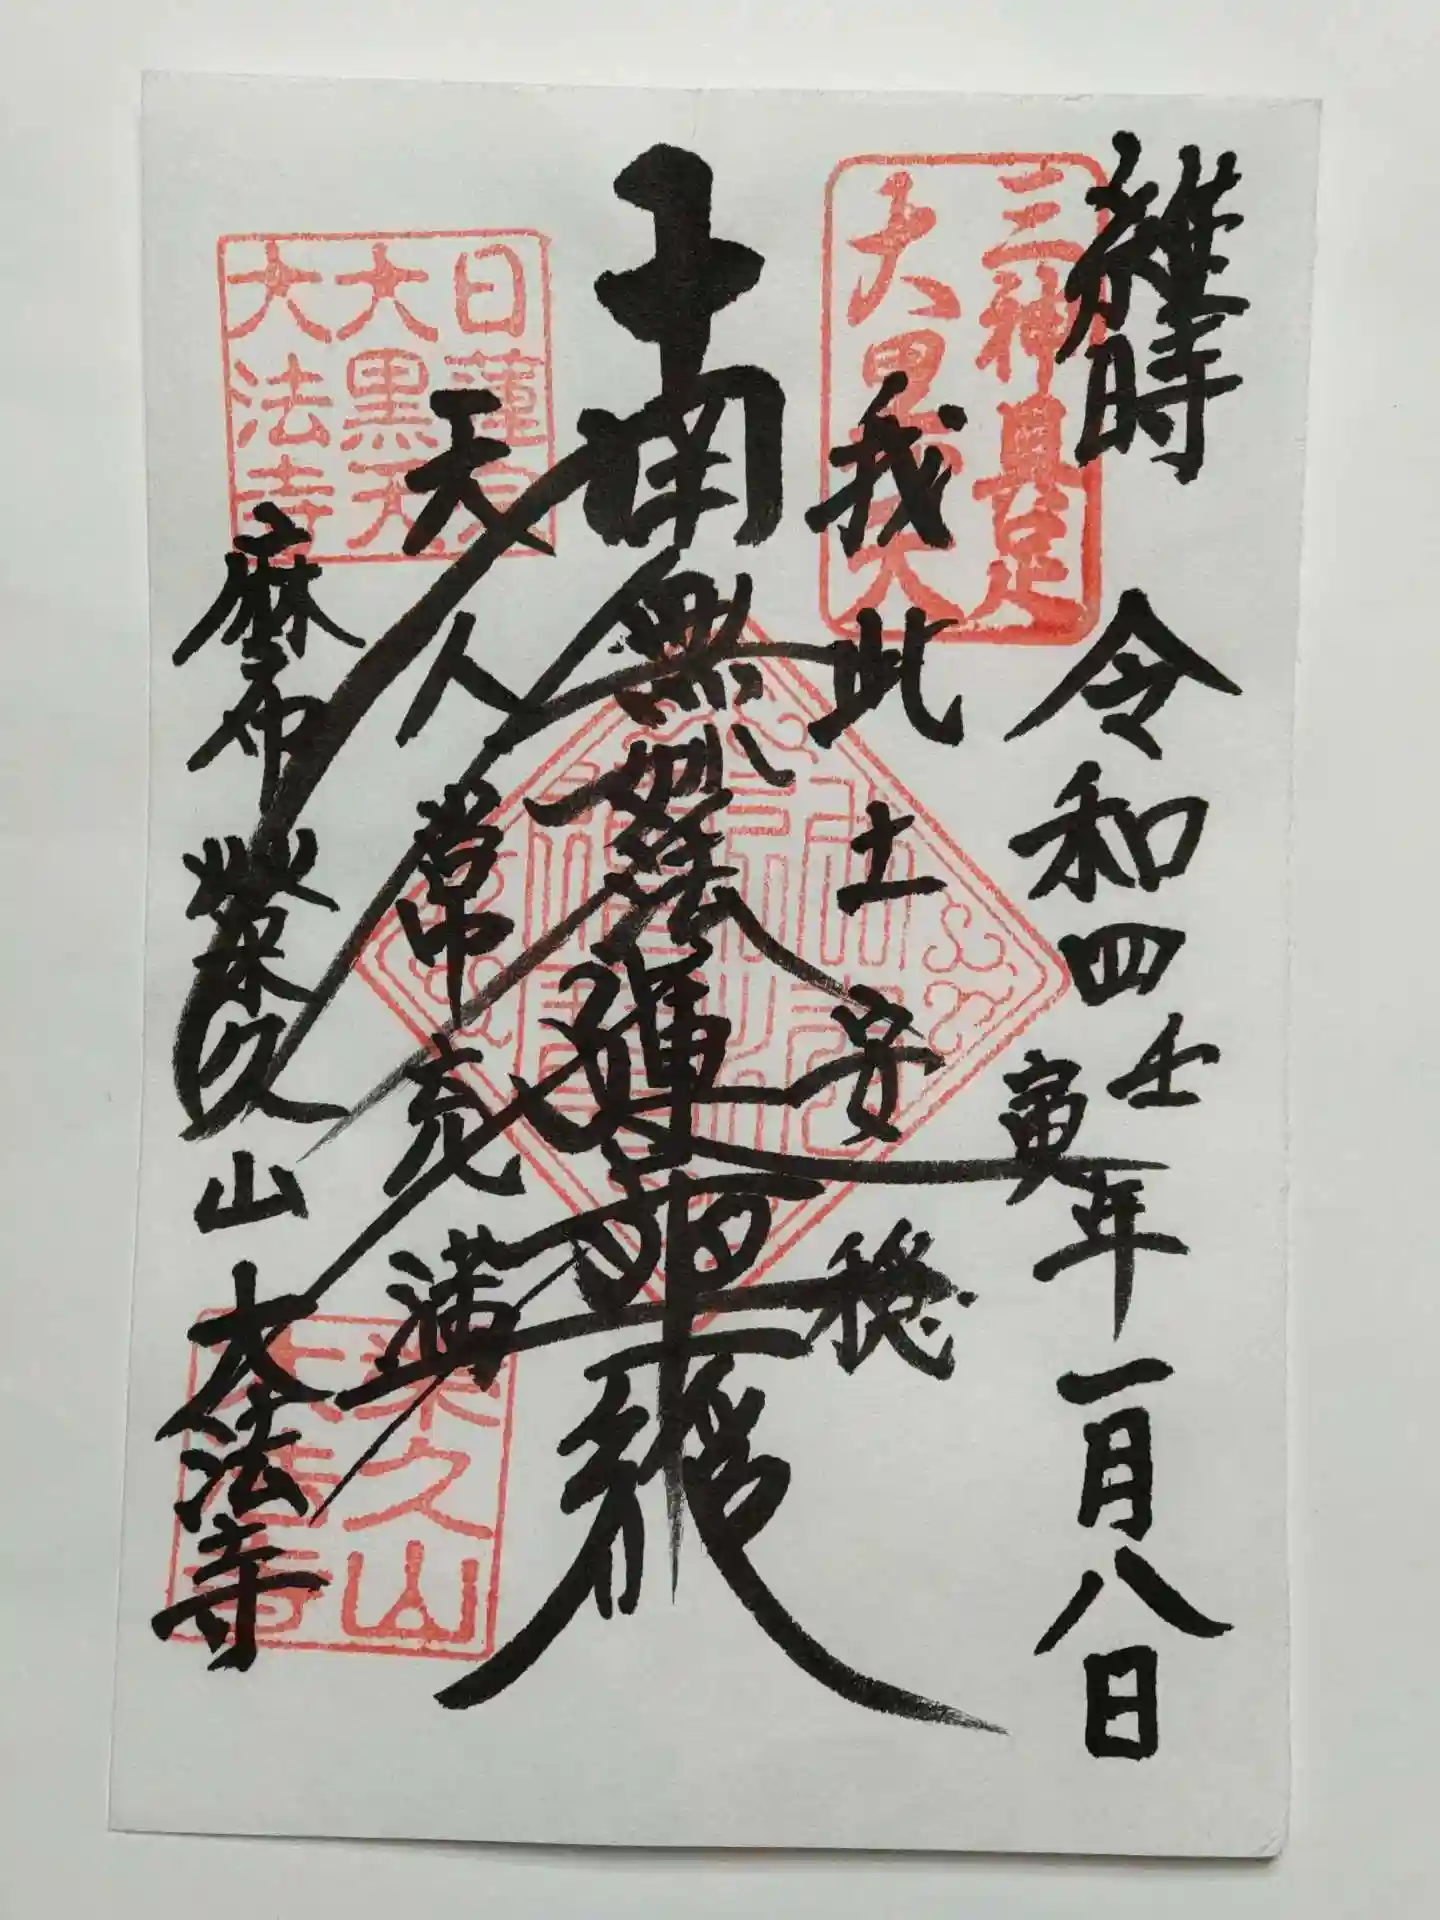 維時 令和四壬寅年一月八日
三神具足
大黒天
我此土安穏
南無妙法蓮華経
天人常充満
日蓮宗
大黒天
大法寺
麻布 栄久山 大法寺
栄久山
大法寺